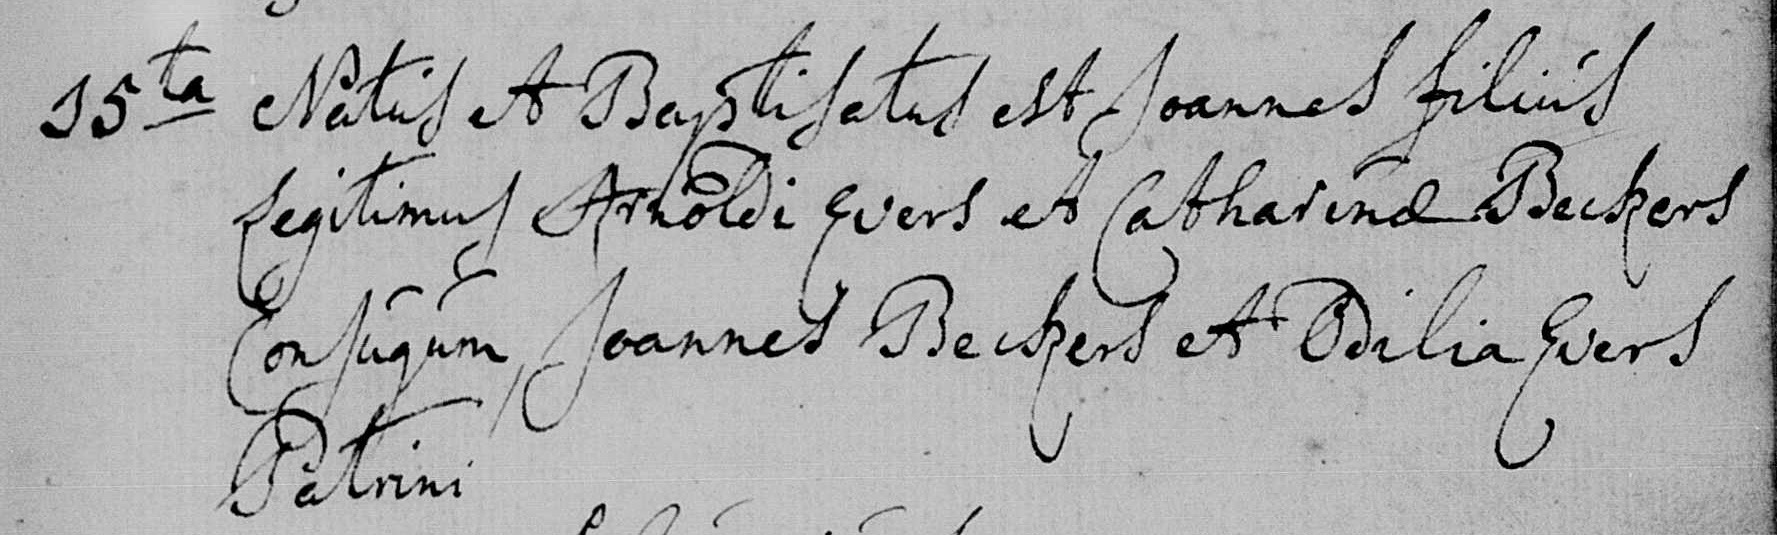 15ta Natus et Baptisatus est Joannes filius
legitimus Arnoldi Evers et Catharinæ Beckers
Conjugum, Joannes Beckers et Odilia Evers
Patrini